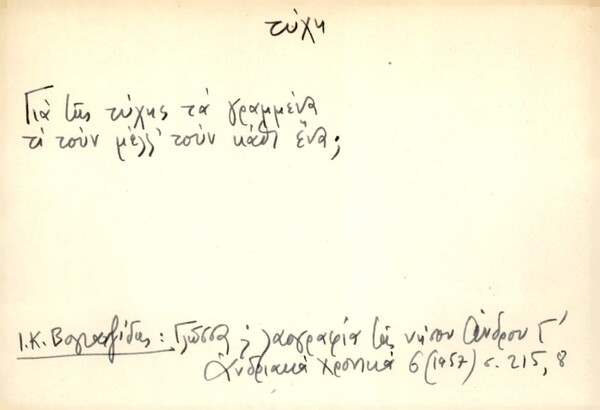 τύχη
Γιὰ τῆς τύχης τὰ γραμμένα
τί τοὺν μέλλ' τοὺν κάθι ἕνα;
Ι.Κ. Βογιατζίδης: Γλῶσσα κ λαογραφία τῆς νήσου Ἄνδρου Γ'
Ἀνδριακὰ Χρονικὰ 6 (1957) σ. 215, 8